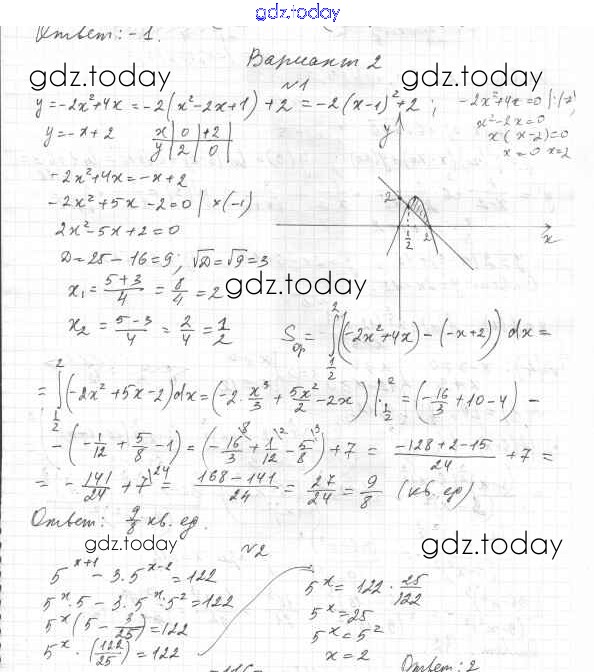 gdz.today
Ответ: -1.
Вариант 2
gdz.today gdz.today
№1
y=-2x²+4x=-2(x²-2x+1)+2=-2(x-1)²+2; -2x²+4x=0 |:(-2)
x²-2x=0
y=-x+2 x|0|+2| y|2|0| x(x-2)=0
x=0 x=2
y
-2x²+4x=-x+2
-2x²+5x-2=0 | ×(-1)
2
2x²-5x+2=0
1/2 2 x
D=25-16=9; √D=√9=3
gdz.today
x₁=(5+3)/4=8/4=2
x₂=(5-3)/4=2/4=1/2 Sф=∫₁/₂²((-2x²+4x)-(-x+2))dx=
=∫₁/₂²(-2x²+5x-2)dx=(-2·x³/3+5x²/2-2x)|₁/₂²=(-16/3+10-4)-
-(-1/12+5/8-1)=(-16/3\8+1/12\2-5/8\3)+7=(-128+2-15)/24+7=
=-141/24+7\24=(168-141)/24=27/24=9/8 (кв. ед)
Ответ: 9/8 кв. ед.
gdz.today gdz.today
№2
5^(x+1)-3·5^(x-2)=122
5^x·5-3·5^x·5²=122
5^x(5-3/25)=122
5^x·(122/25)=122
5^x=122·25/122
5^x=25
5^x=5²
x=2
Ответ: 2